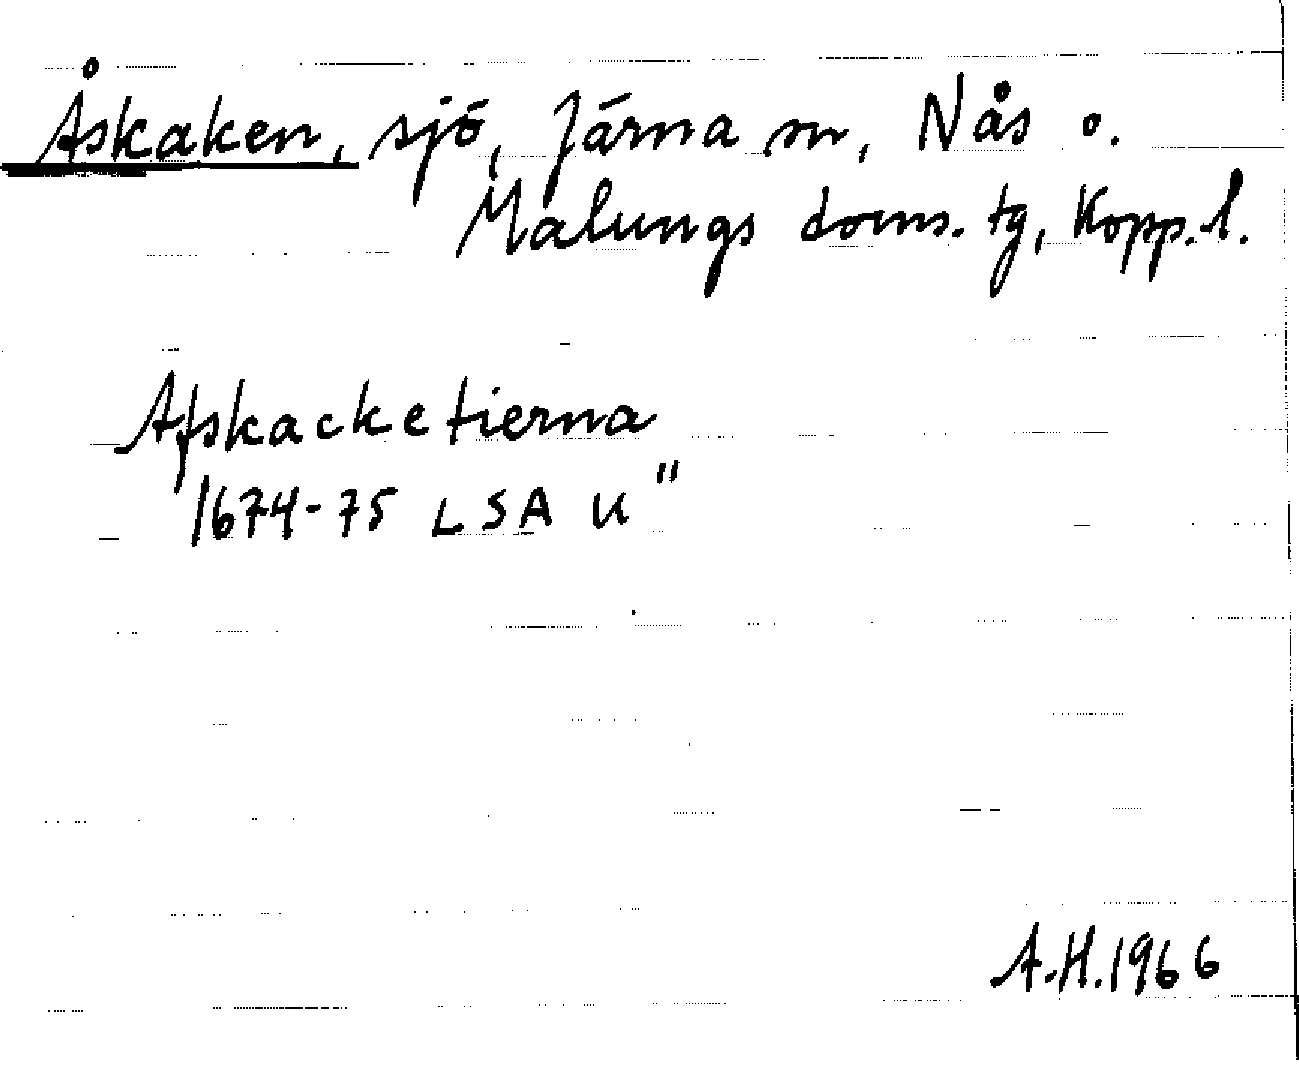 Åskaken, sjö, Järna sn, Nås o.
Malungs doms. tg, Kopp. l.
Afskacketierna
1674-75 LSA U"
A.H. 1966